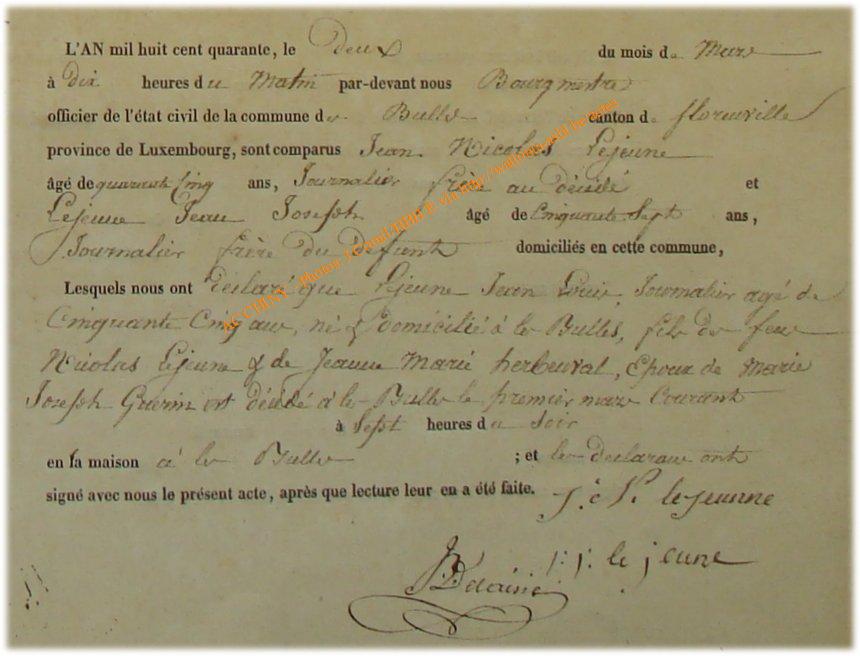 L'AN mil huit cent quarante, le Deux du mois de Mars
à dix heures du Matin par-devant nous Bourgmestre
officier de l'état civil de la commune de Bulles canton de florenville
province de Luxembourg, sont comparus Jean Nicolas Lejeune
âgé de quarante Cinq ans, Journalier frère au décédé et
Lejeune Jean Joseph âgé de Cinquante Sept ans,
Journalier frère du Defunt domiciliés en cette commune,
Lesquels nous ont déclaré que Lejeune Jean Louis, Journalier agé de
Cinquante Cinq ans, né & domicilié à les Bulles, fils de feu
Nicolas Lejeune & de Jeanne Marie herbeuval, Epoux de Marie
Joseph Guerin est décédé à les Bulles le premier mars Courant
à Sept heures du Soir
en la maison à les Bulles ; et les declarans ont
signé avec nous le présent acte, après que lecture leur en a été faite. J: N: lejeunne
J: J: le jeune